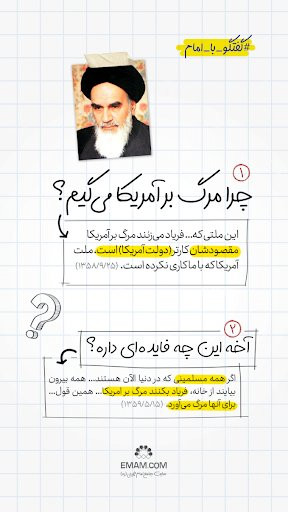 #گفتگو_با_امام
۱
چرا مرگ بر آمریکا می‌گیم؟
این ملتی که... فریاد می‌زنند مرگ بر آمریکا
مقصودشان کارتر (دولت آمریکا) است. ملت
آمریکا که با ما کاری نکرده است. (۱۳۵۸/۹/۲۵)
?
۲
آخه این چه فایده‌ای داره؟
اگر همه مسلمینی که در دنیا الآن هستند... همه بیرون
بیایند از خانه، فریاد بکنند مرگ بر امریکا... همین قول...
برای آنها مرگ می‌آورد. (۱۳۵۹/۵/۱۵)
EMAM.COM